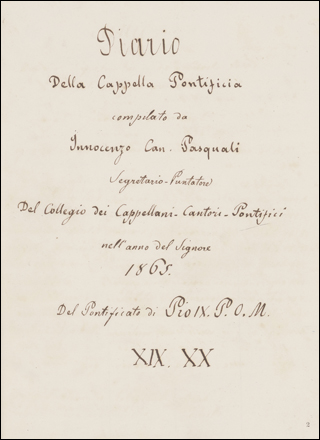 Diario
Della Cappella Pontificia
compilato da
Innocenzo Can. Pasquali
Segretario-Puntatore
Del Collegio dei Cappellani-Cantori-Pontifici
nell'anno del Signore
1865.
Del Pontificato di Pio IX. P. O. M.
XIX. XX
2